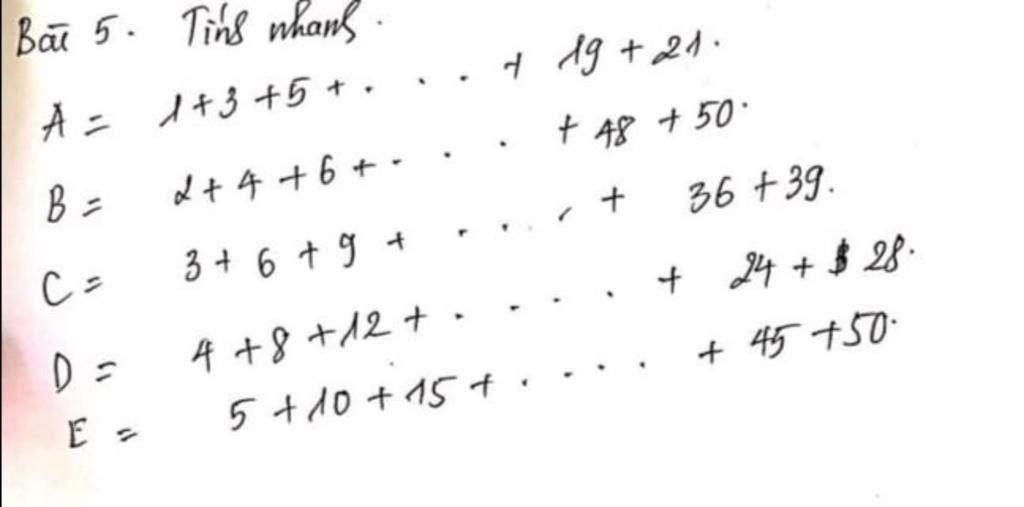 Bài 5. Tính nhanh.
A = 1+3+5+. . . . + 19+21.
B = 2+4+6+. . . + 48+50.
C = 3+6+9+ . . . . + 36+39.
D = 4+8+12+. . . . . + 24+ 28.
E = 5+10+15+. . . . + 45+50.